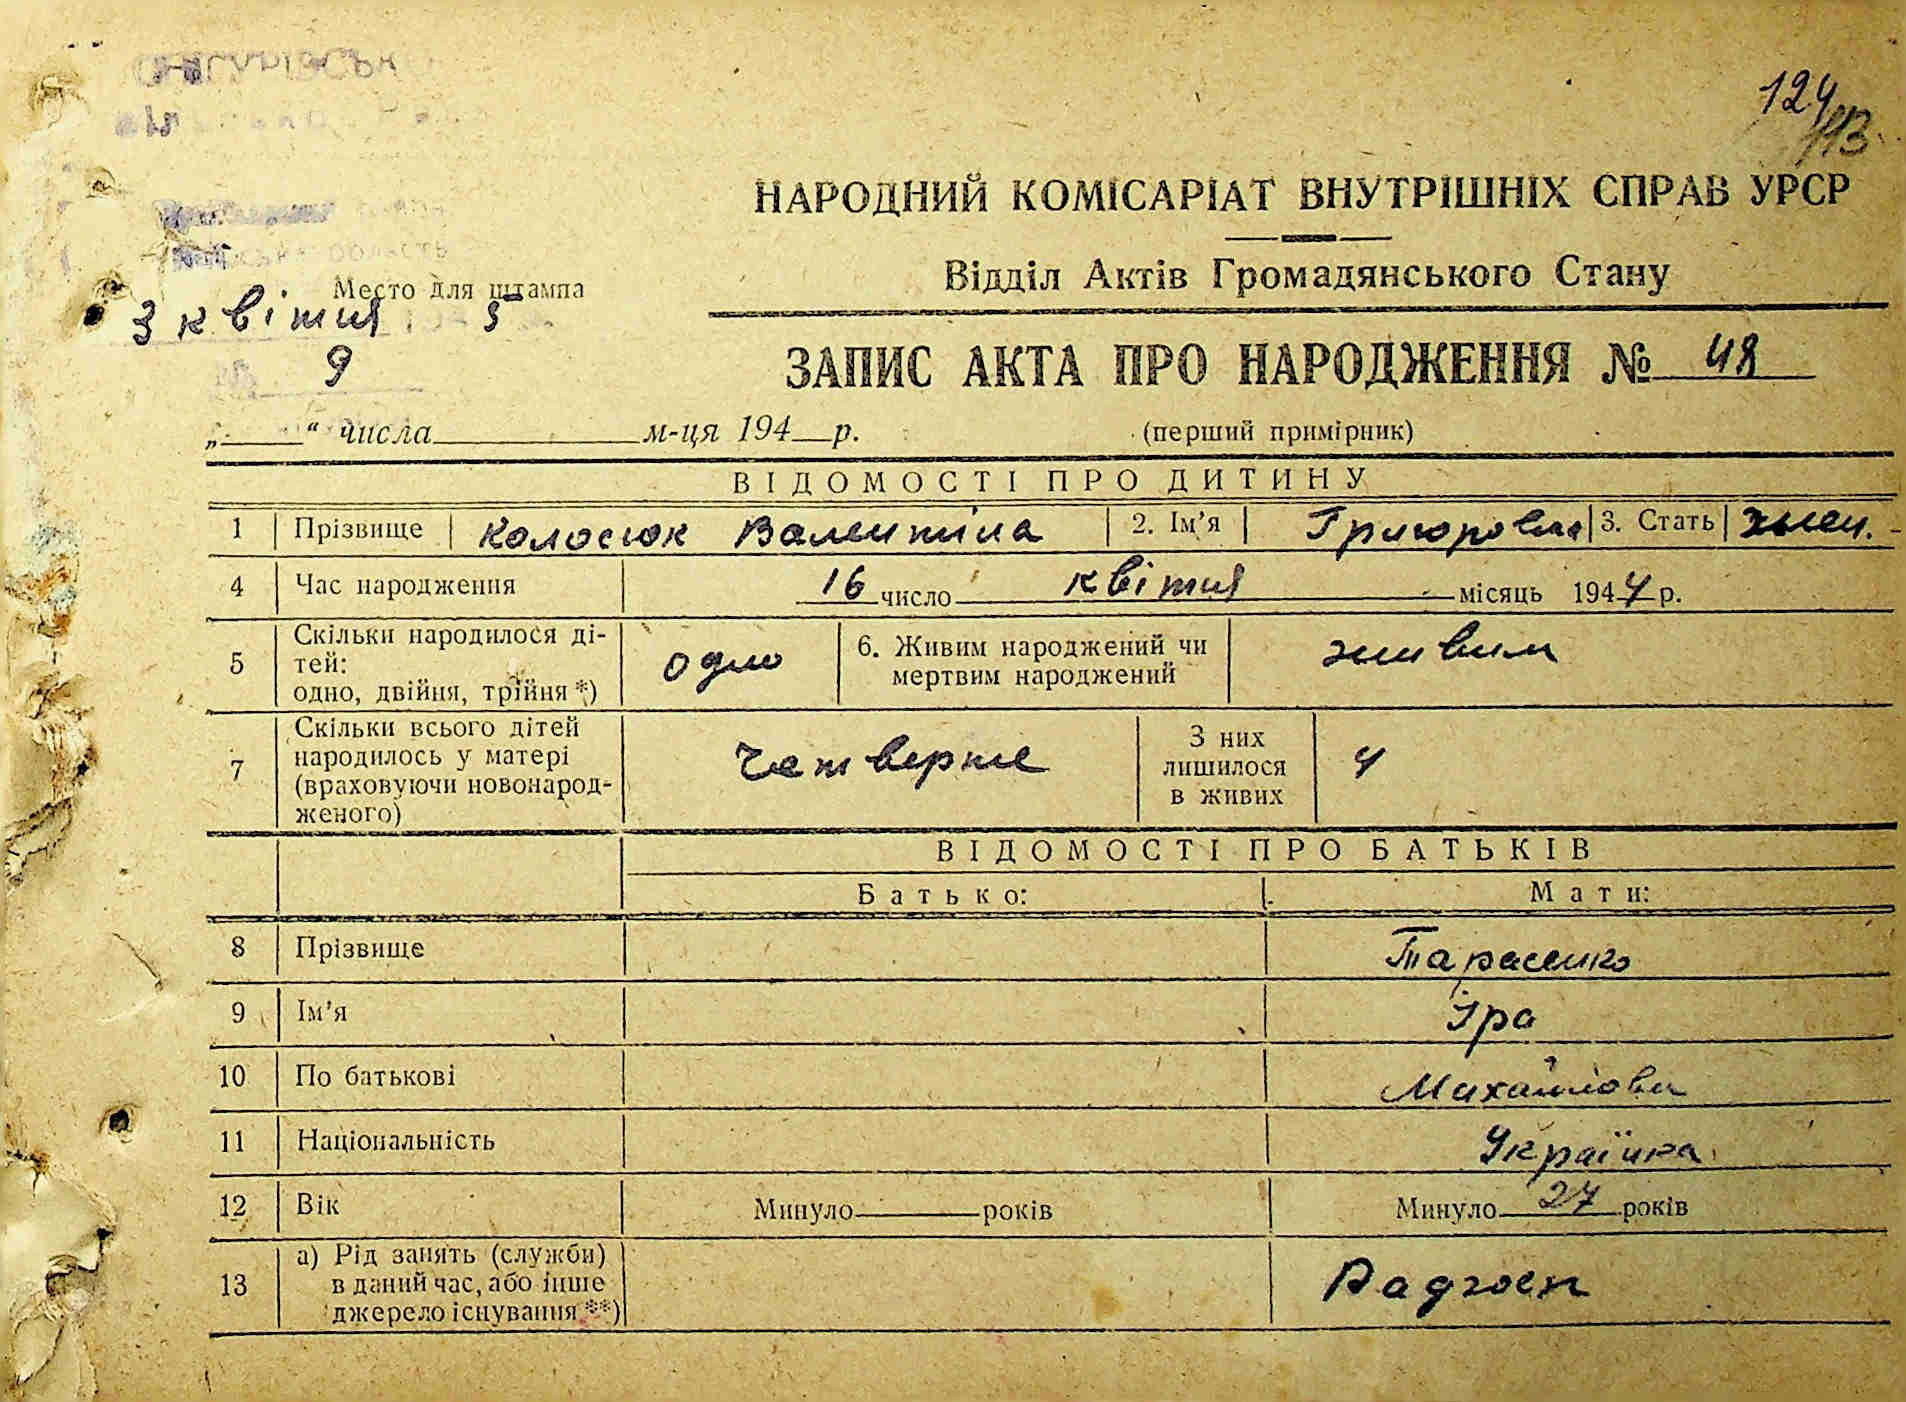 124
113
НАРОДНИЙ КОМІСАРІАТ ВНУТРІШНІХ СПРАВ УРСР
Відділ Актів Громадянського Стану
область
Место для штампа
3 квітня 5
9
ЗАПИС АКТА ПРО НАРОДЖЕННЯ № 48
„ “ числа м-ця 194 р.
(перший примірник)
ВІДОМОСТІ ПРО ДИТИНУ
1 Прізвище Колосюк Валентіна 2. Ім’я Григоровна 3. Стать жен.
4 Час народження 16 число квітня місяць 1944 р.
5 Скільки народилося ді-
тей:
одно, двійня, трійня *) одно 6. Живим народжений чи
мертвим народжений живим
7 Скільки всього дітей
народилось у матері
(враховуючи новонарод-
женого) Четверте З них
лишилося
в живих 4
ВІДОМОСТІ ПРО БАТЬКІВ
Батько: Мати:
8 Прізвище Тарасенко
9 Ім’я Іра
10 По батькові Михайлова
11 Національність Українка
12 Вік Минуло років Минуло 27 років
13 а) Рід занять (служби)
в даний час, або інше
джерело існування **) Радгосп